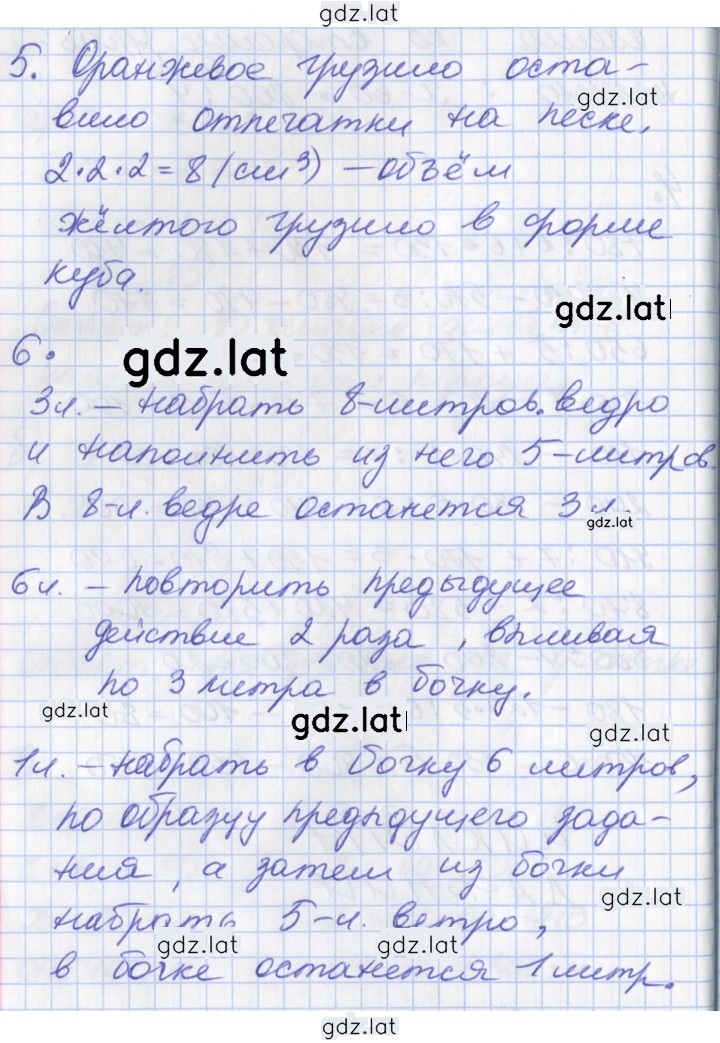 gdz.lat
5. Оранжевое грузило оста-
gdz.lat
вило отпечатки на песке.
2·2·2=8(см³) – объём
жёлтого грузило в форме
куба.
gdz.lat
6.
gdz.lat
3л. – набрать 8-литров. ведро
и наполнить из него 5-литров.
В 8-л. ведре останется 3 л.
gdz.lat
6л. – повторить предыдущее
действие 2 раза, выливая
по 3 литра в бочку.
gdz.lat
gdz.lat
gdz.lat
1л. – набрать в бочку 6 литров,
по образцу предыдущего зада-
ния, а затем из бочки
gdz.lat
набрать 5-л. ветро,
gdz.lat
gdz.lat
в бочке останется 1 литр.
gdz.lat